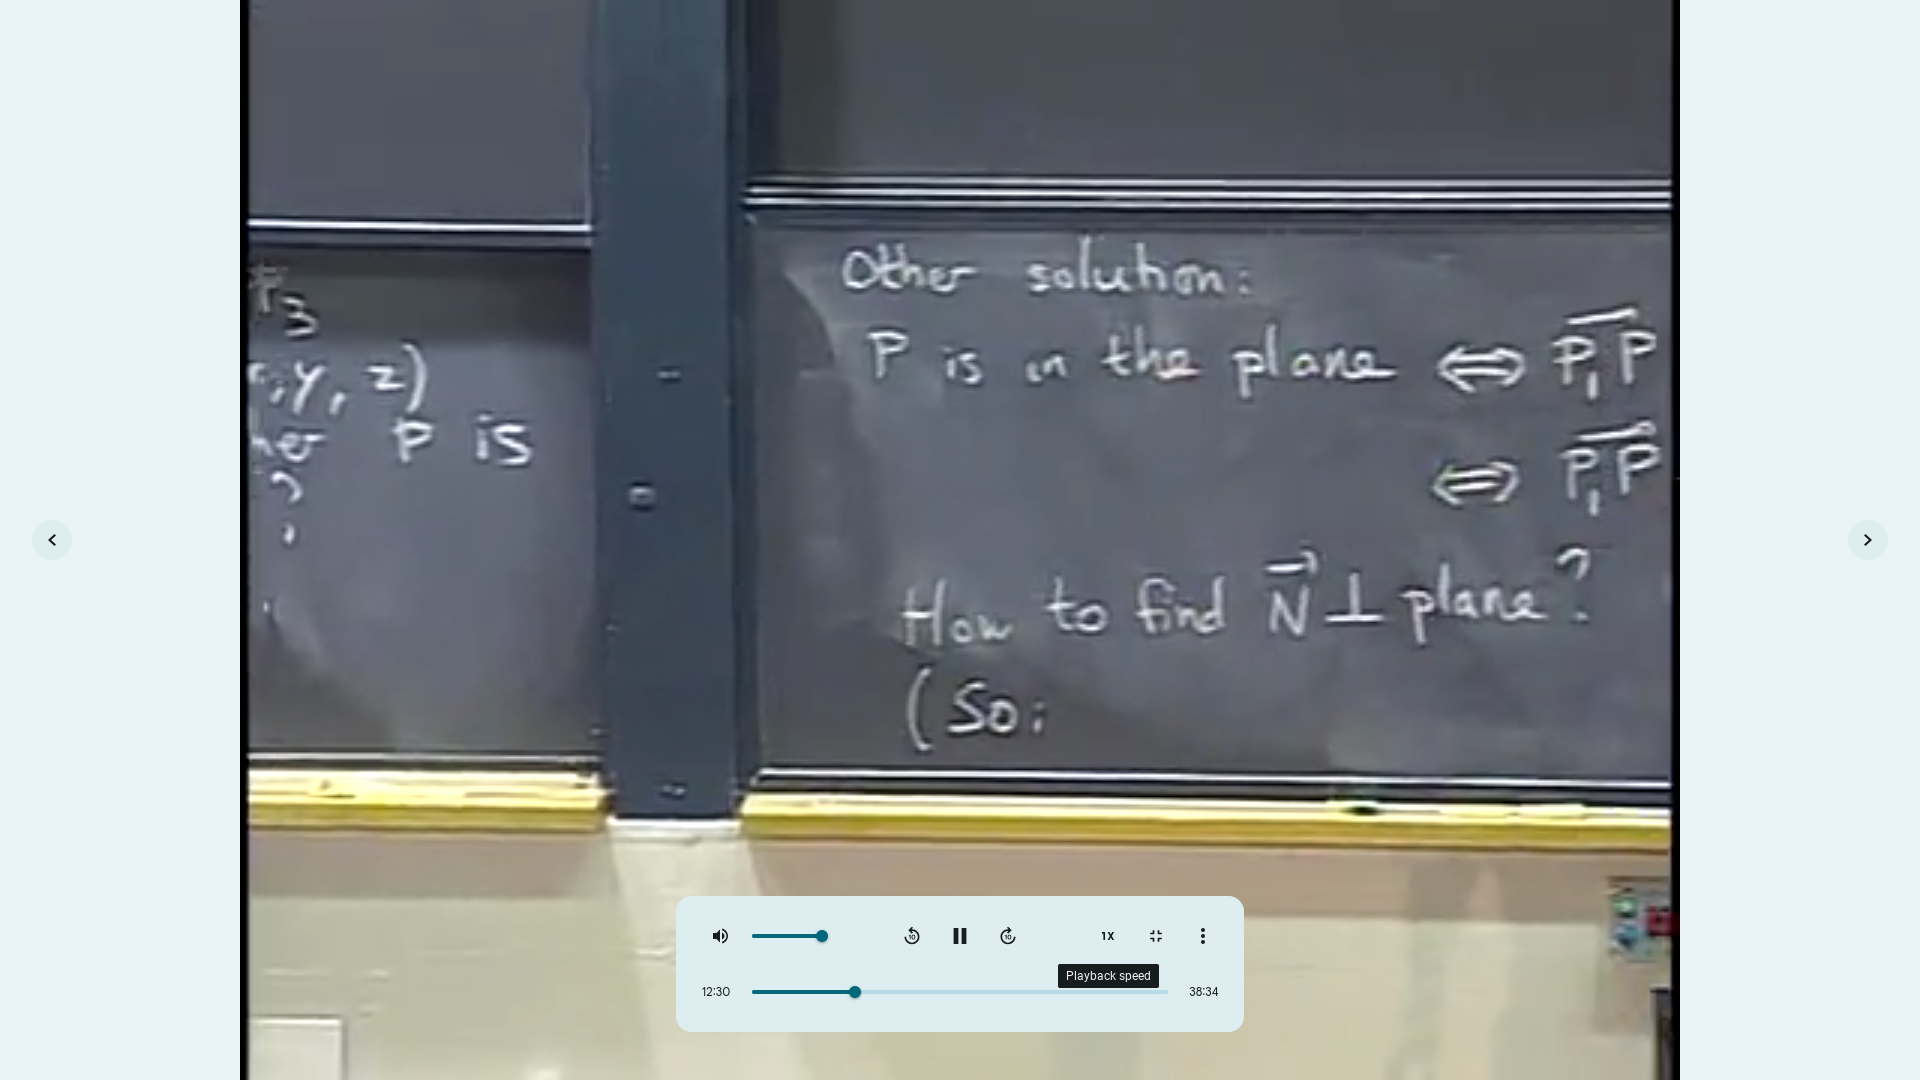 3
, y, z)
P is
?
Other solution:
P is in the plane ⇔ P₁P
⇔ P₁P
How to find N ⊥ plane?
(So:
1X
Playback speed
12:30
38:34